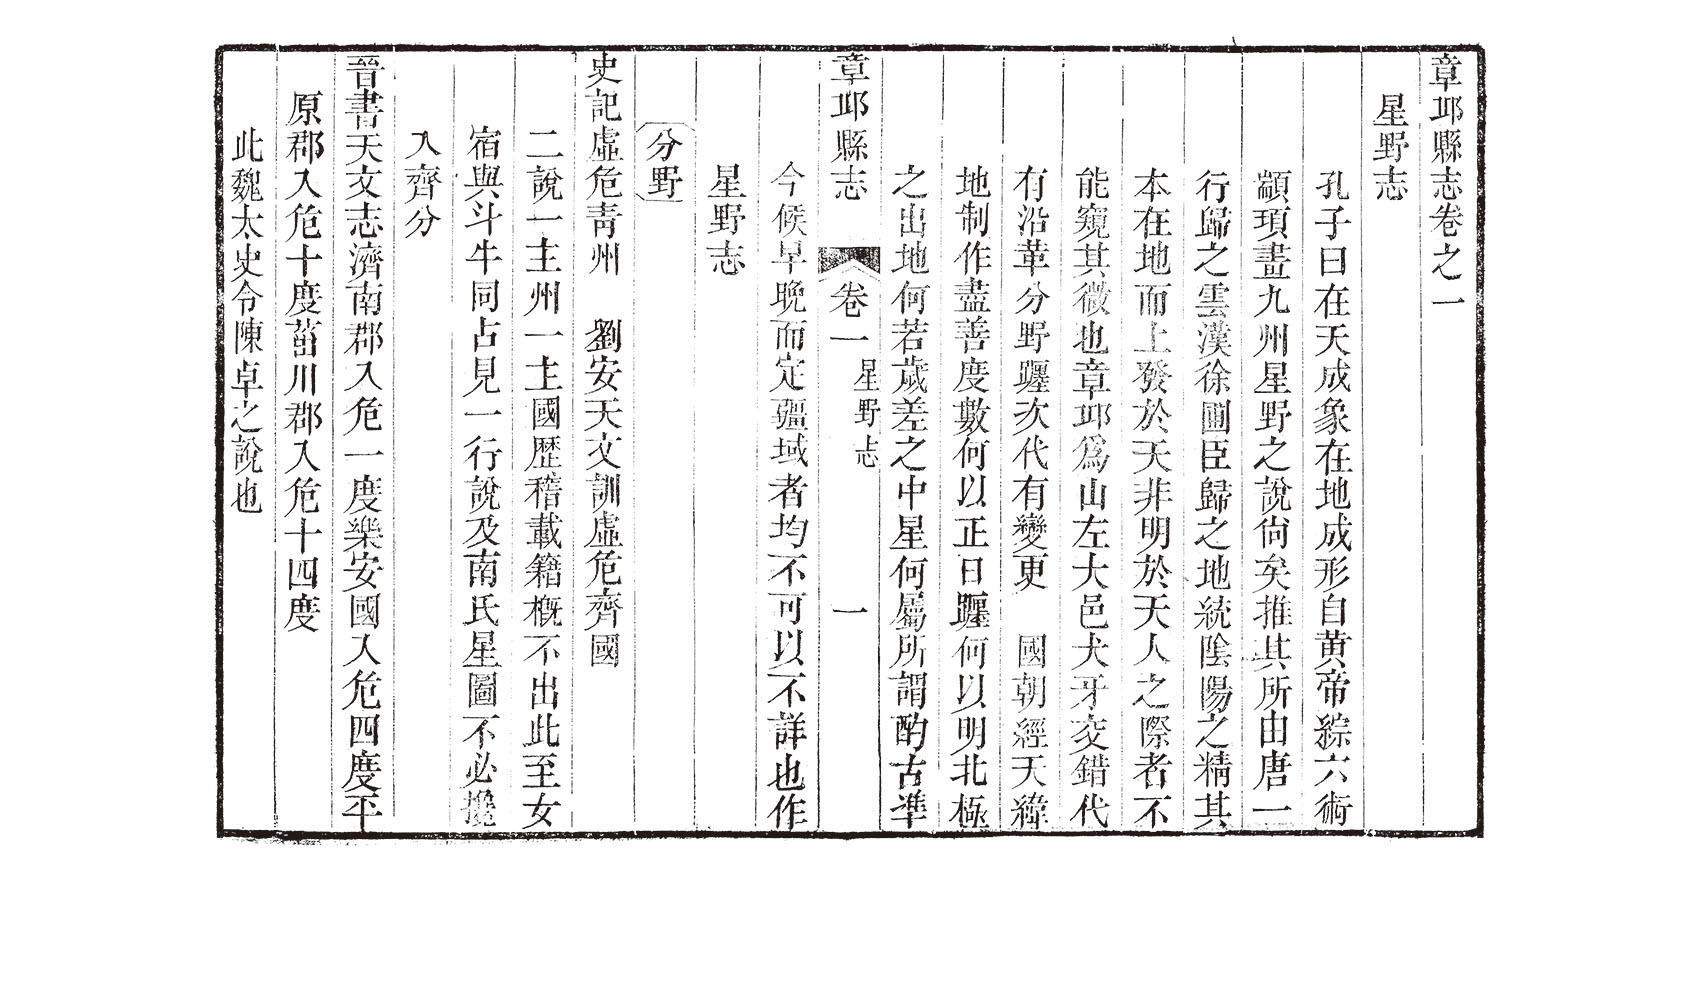 章邱縣志卷之一
星野志
孔子曰在天成象在地成形自黃帝綜六術
顓頊畫九州星野之說尙矣推其所由唐一
行歸之雲漢徐圃臣歸之地統陰陽之精其
本在地而上發於天非明於天人之際者不
能窺其微也章邱爲山左大邑犬牙交錯代
有沿革分野躔次代有變更　國朝經天緯
地制作盡善度數何以正日躔何以明北極
之出地何若歲差之中星何屬所謂酌古準
章邱縣志　卷一　星野志　一
今候早晚而定疆域者均不可以不詳也作
星野志
分野
史記虛危靑州　劉安天文訓虛危齊國
二說一主州一主國歷稽載籍概不出此至女
宿與斗牛同占見一行說及南氏星圖不必攙
入齊分
晉書天文志濟南郡入危一度樂安國入危四度平
原郡入危十度菑川郡入危十四度
此魏太史令陳卓之說也